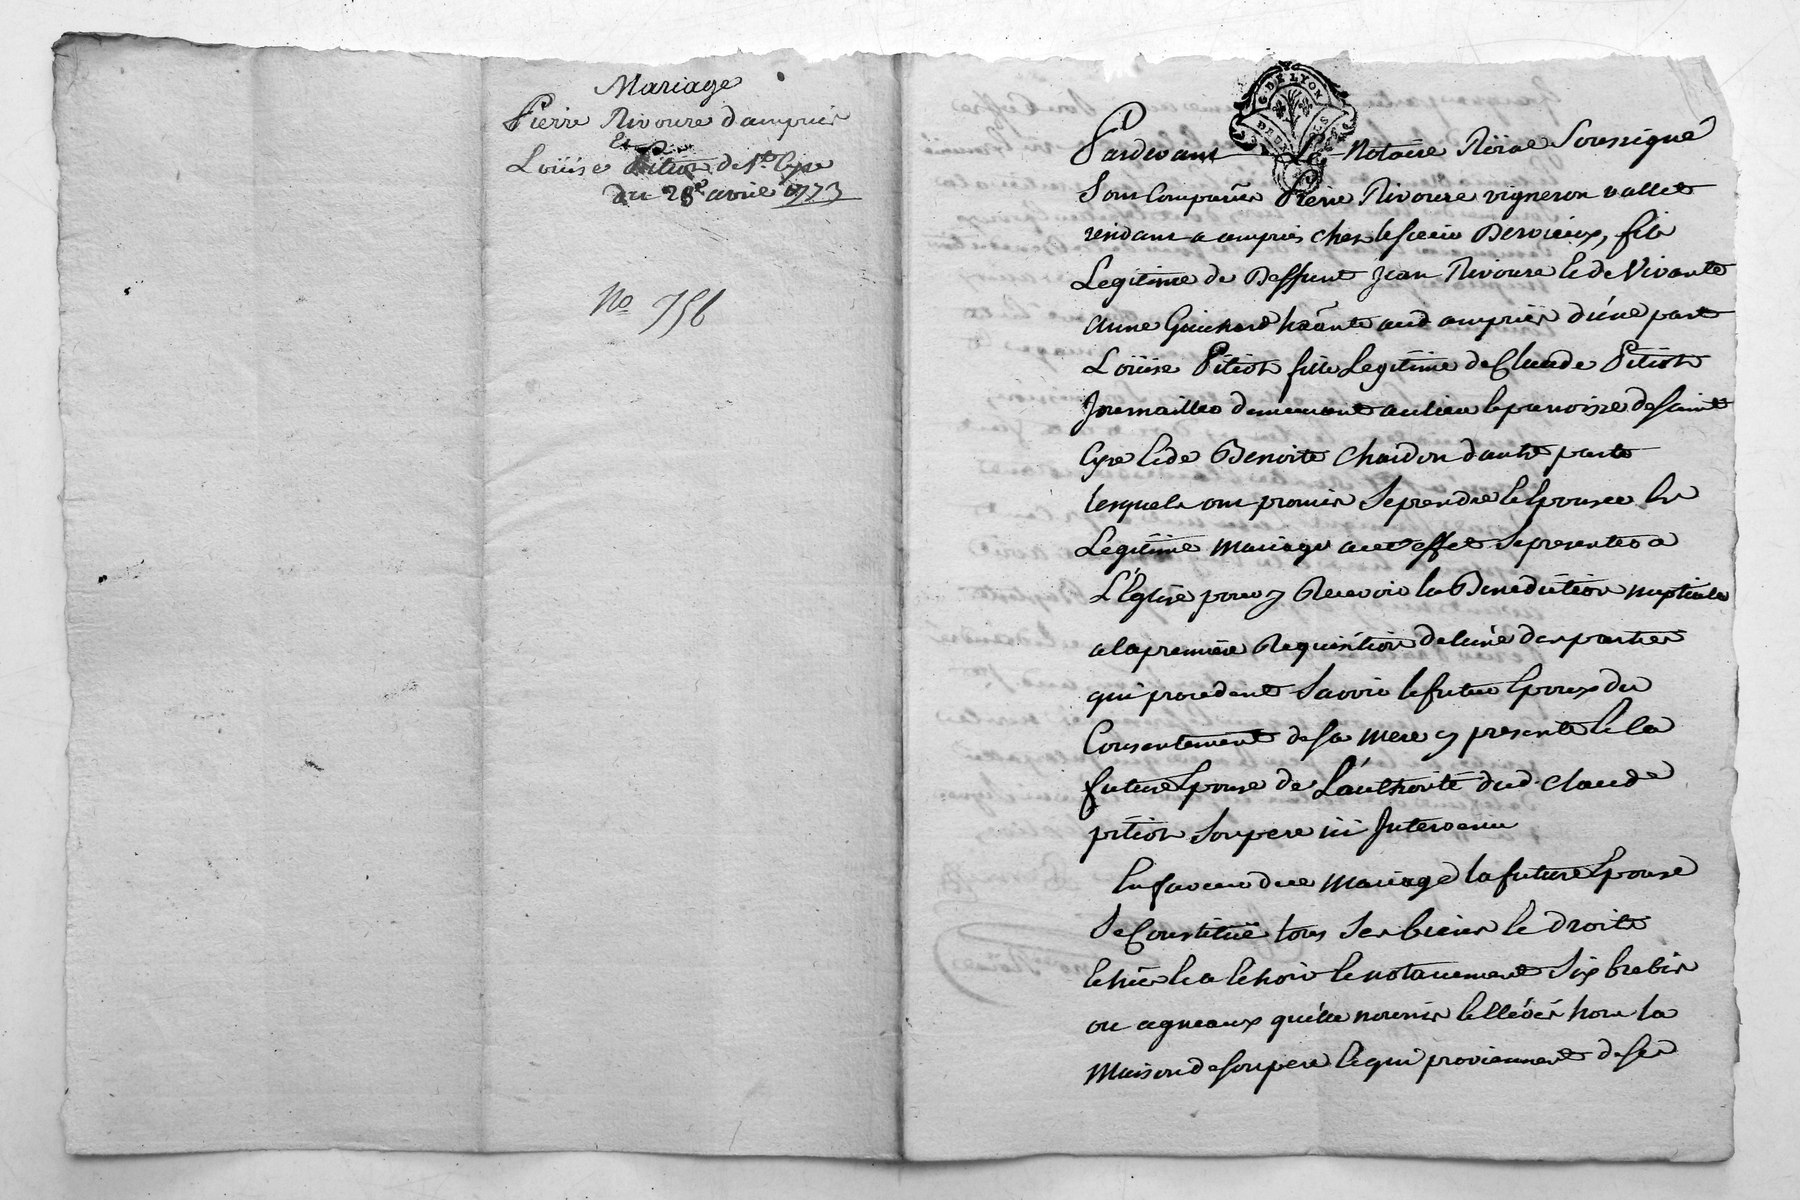 Mariage
Pierre Rivoire d'ampuis
Et
Loüise Pitiot de St. Cyre
du 28e. avril 1773
No. 756
G. DE LYON
DEUX
Pardevant Le Notaire Roïal Soussigné
Sont Comparûs Pierre Rivoire vigneron vallet
rendant a ampuis chés le sieur Dervieux, fils
Legitime de Deffunt Jean Rivoire Et de Vivante
anne Guichard hãnte aud ampuis d'úne part
Loüise Pitiot fille Legitime de Claude Pitiot
Journaillier demeurant au lieu Et paroisse de Saint
Cyre Et de Benoite Chardon d'autre parte
lesquels ont promis Se prendre Et Epouser En
Legitime mariage a cet effet Se presenter a
L'Eglise pour y Recevoir la Benediction nuptiale
a la premiere Requisition de l'une des parties
qui procedent Savoir le futur Epoux du
Consentement de Sa mere y presente Et la
future Epouse de L'authorité dud. Claude
pitiot Son pere ici Intervenu
En faveur du mariage la future Epouse
Se Constitüe tous Ses biens Et droits
Echûs Et a Echoir Et notamment Six brebis
ou agneaux qu'elle nourris Et Elevés hors la
maison de Son pere Et qui proviennent de Ses